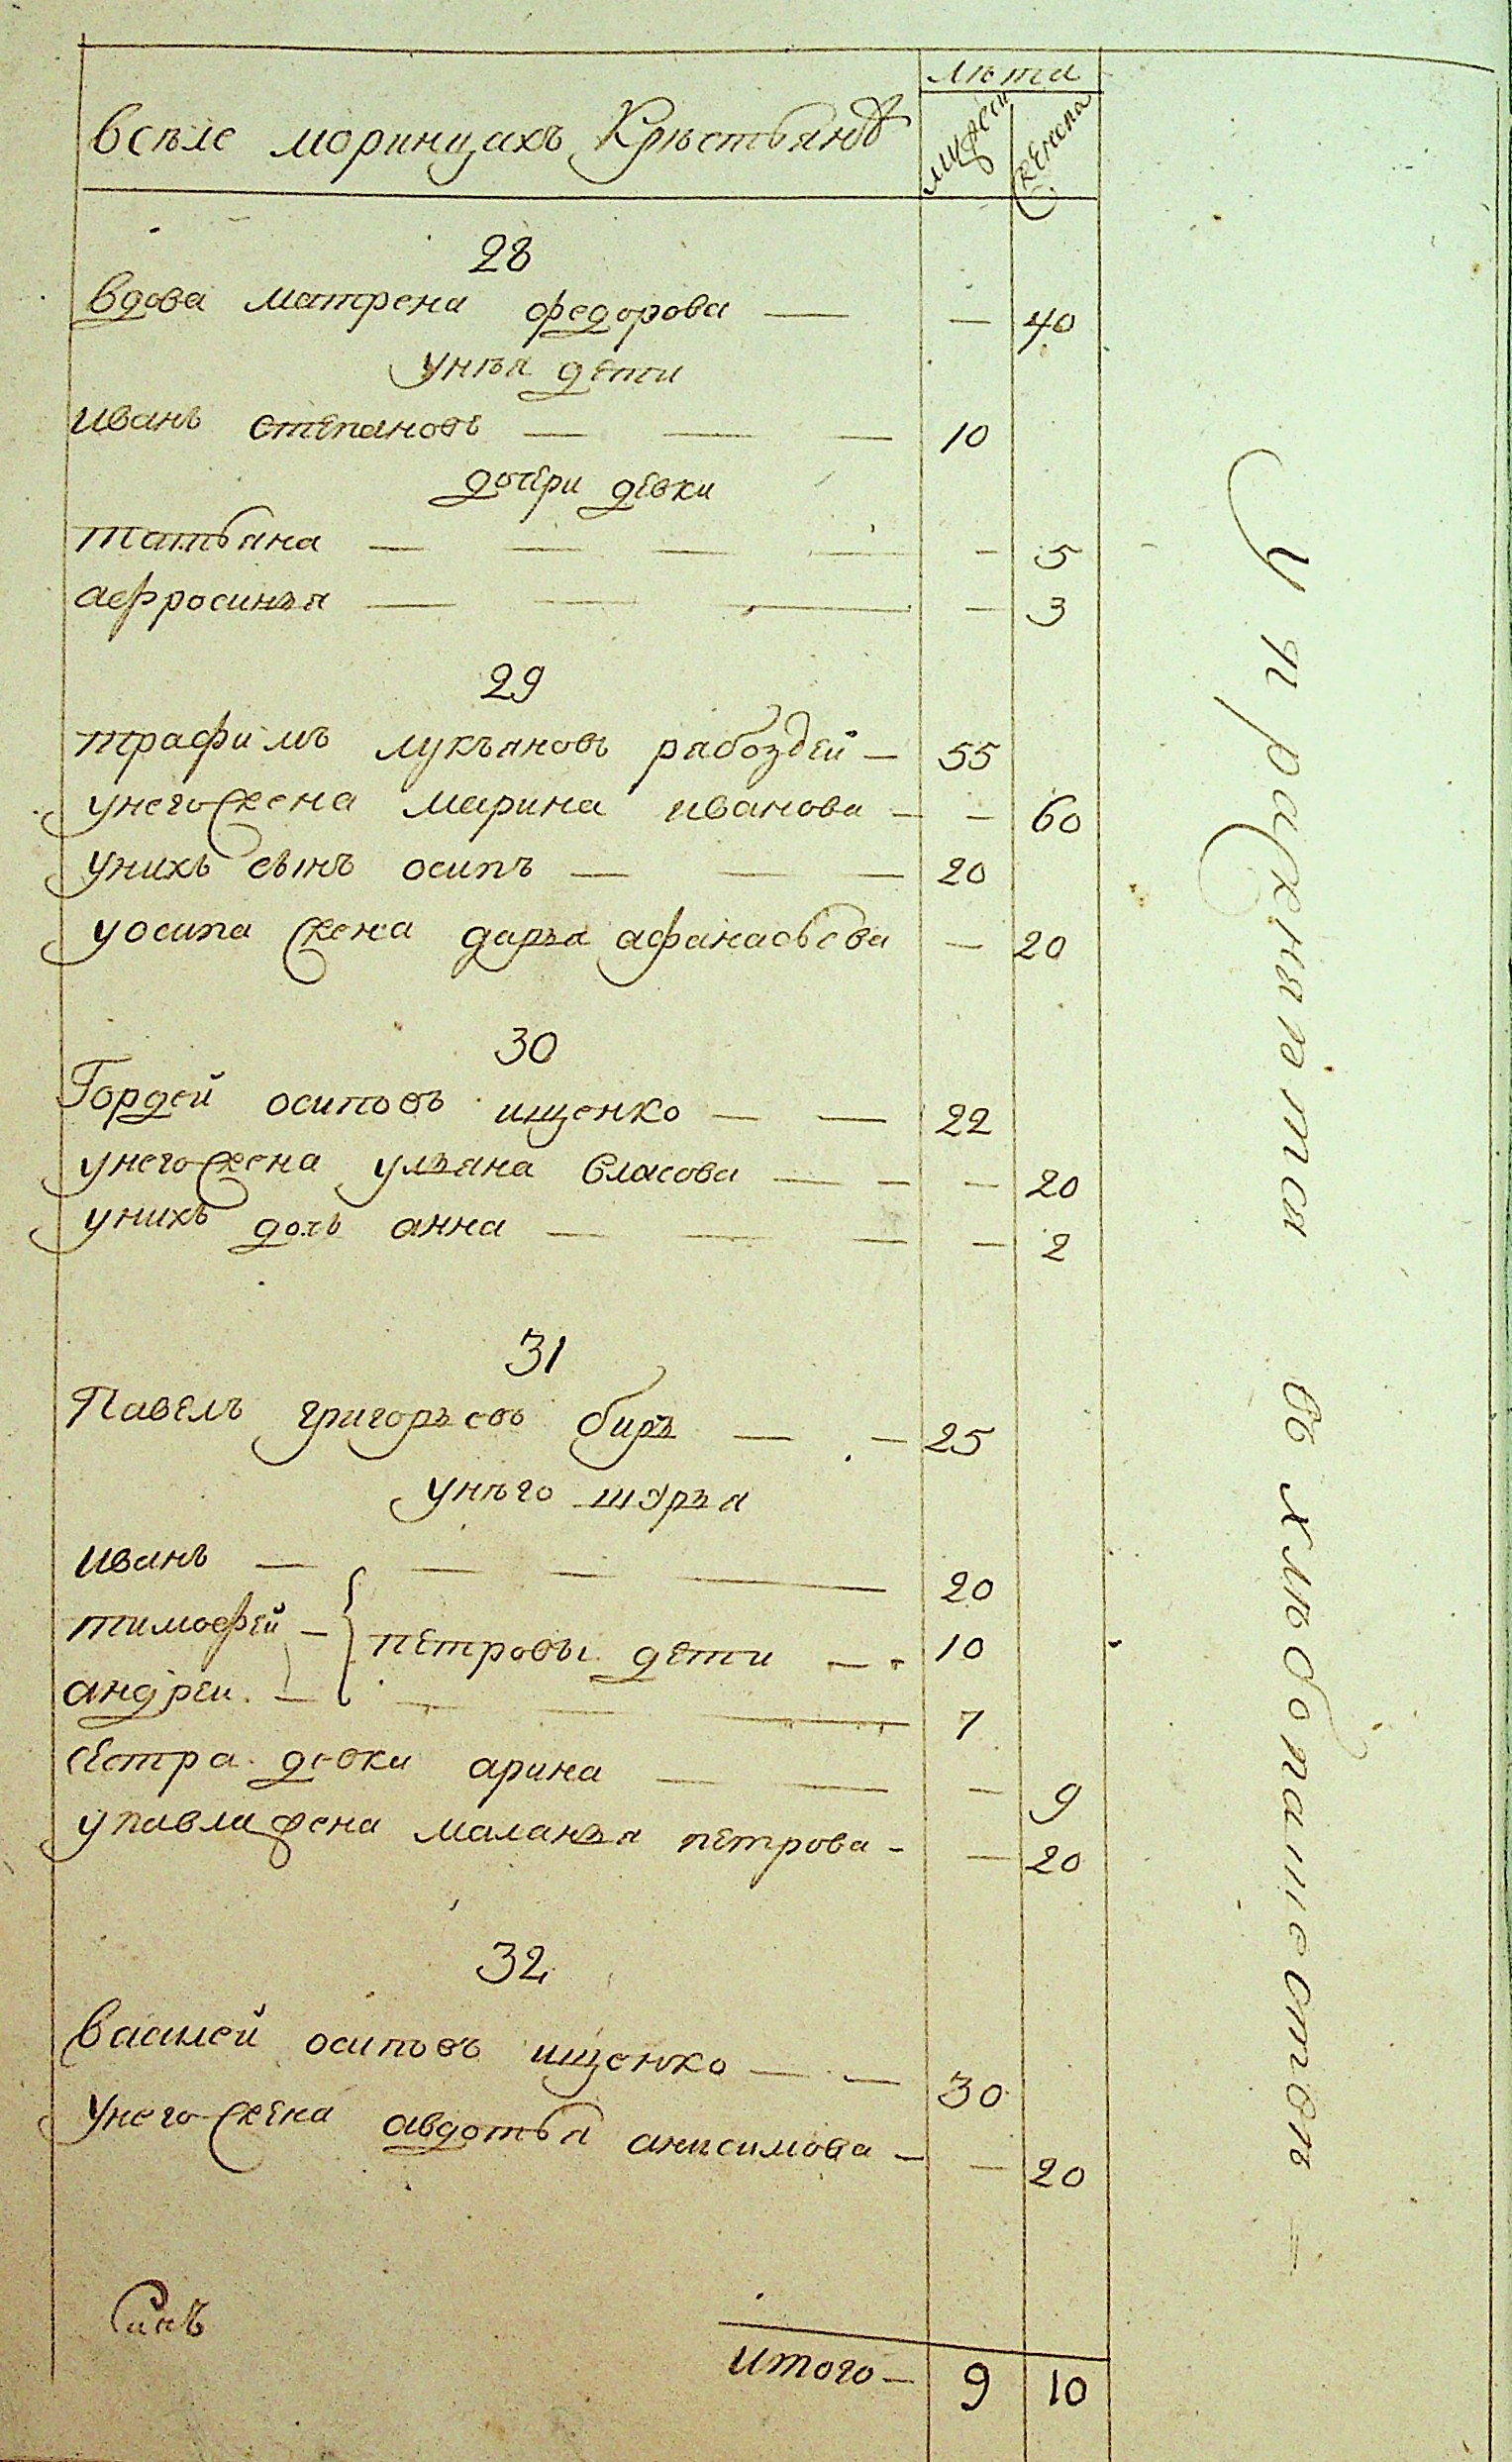 лѣта
вселе моринцахъ Крѣстьянъ
мужеск женска
28
вдова матрена федорова — — 40
унѣя дети
иванъ степановъ — — — 10
дочери девки
татьяна — — — — — 5
аефросинъя — — — — 3
29
трафимъ лукъяновъ рабоздей — 55
унего жена марина иванова — — 60
унихъ сынъ осипъ — — — 20
уосипа жена даръя афанасьева — 20
30
Гордей осиповъ ищенко — — 22
унего жена улъяна власова — — — 20
унихъ дочь анна — — — — 2
31
Павелъ григоръевъ биръ — — 25
унѣго шуръя
иванъ — — — — 20
тимофей — { петровы дети — 10
андреи — — — — 7
сестра девки арина — — — 9
упавла жена маланъя петрова — — 20
32
василей осиповъ ищенко — — 30
унего жена авдотья анисимова — — 20
итого — 9 10
Упражняется въ хлѣбопашествѣ =